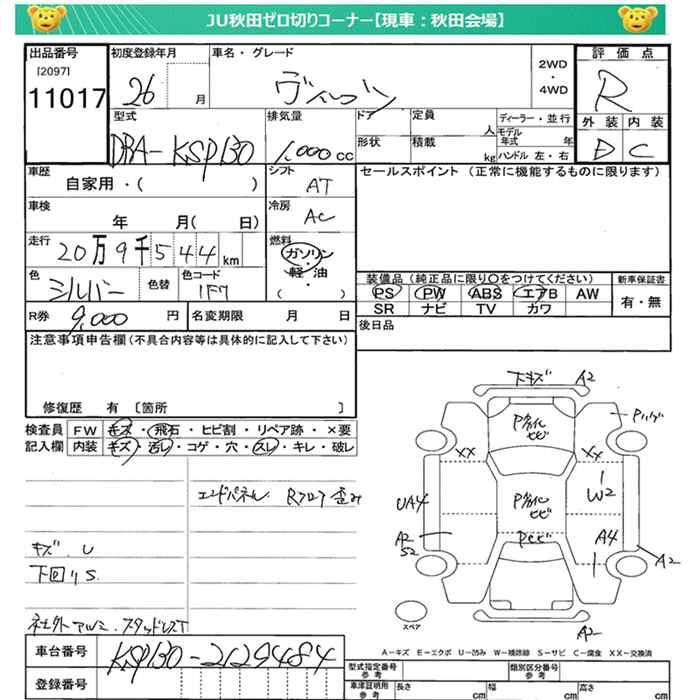 JU秋田ゼロ切りコーナー【現車：秋田会場】
出品番号 初度登録年月 車名・グレード 2WD・4WD 評価点
[2097]
11017 26 月 ヴィッツ R
型式 排気量 ドア 定員 人 ディーラー・並行 外装 内装
DBA-KSP130 1,000cc 形状 積載 kg モデル年式 年 ハンドル 左・右 D C
車歴 シフト セールスポイント（正常に機能するものに限ります）
自家用・( ) AT
車検 冷房
年 月( 日) AC
走行 燃料
20万9千544km ガソリン・軽油
色 色替 色コード ( )
シルバー 1F7
装備品（純正品に限り○をつけてください） 新車保証書
PS PW ABS エアB AW 有・無
SR ナビ TV カワ
R券 9,000円 名変期限 月 日
後日品
注意事項申告欄(不具合内容等は具体的に記入して下さい)
修復歴 有 〔箇所 〕
検査員 FW キズ・飛石・ヒビ割・リペア跡・×要
記入欄 内装 キズ・汚レ・コゲ・穴・スレ・キレ・破レ
エンドパネル Rフロア歪み
キズ.U
下回りS
社外アルミ.スタッドレスT
下キズ A2
Pハゲ
XX XX
W2
UA4
A2
S2
A4
A2
A2
スペア
A-キズ E-エクボ U-凹み W-補修跡 S-サビ C-腐食 XX-交換済
車台番号 KSP130-2129484
登録番号
型式指定番号 参考 類別区分番号 参考
車庫証明用 参考 長さ cm 幅 cm 高さ cm